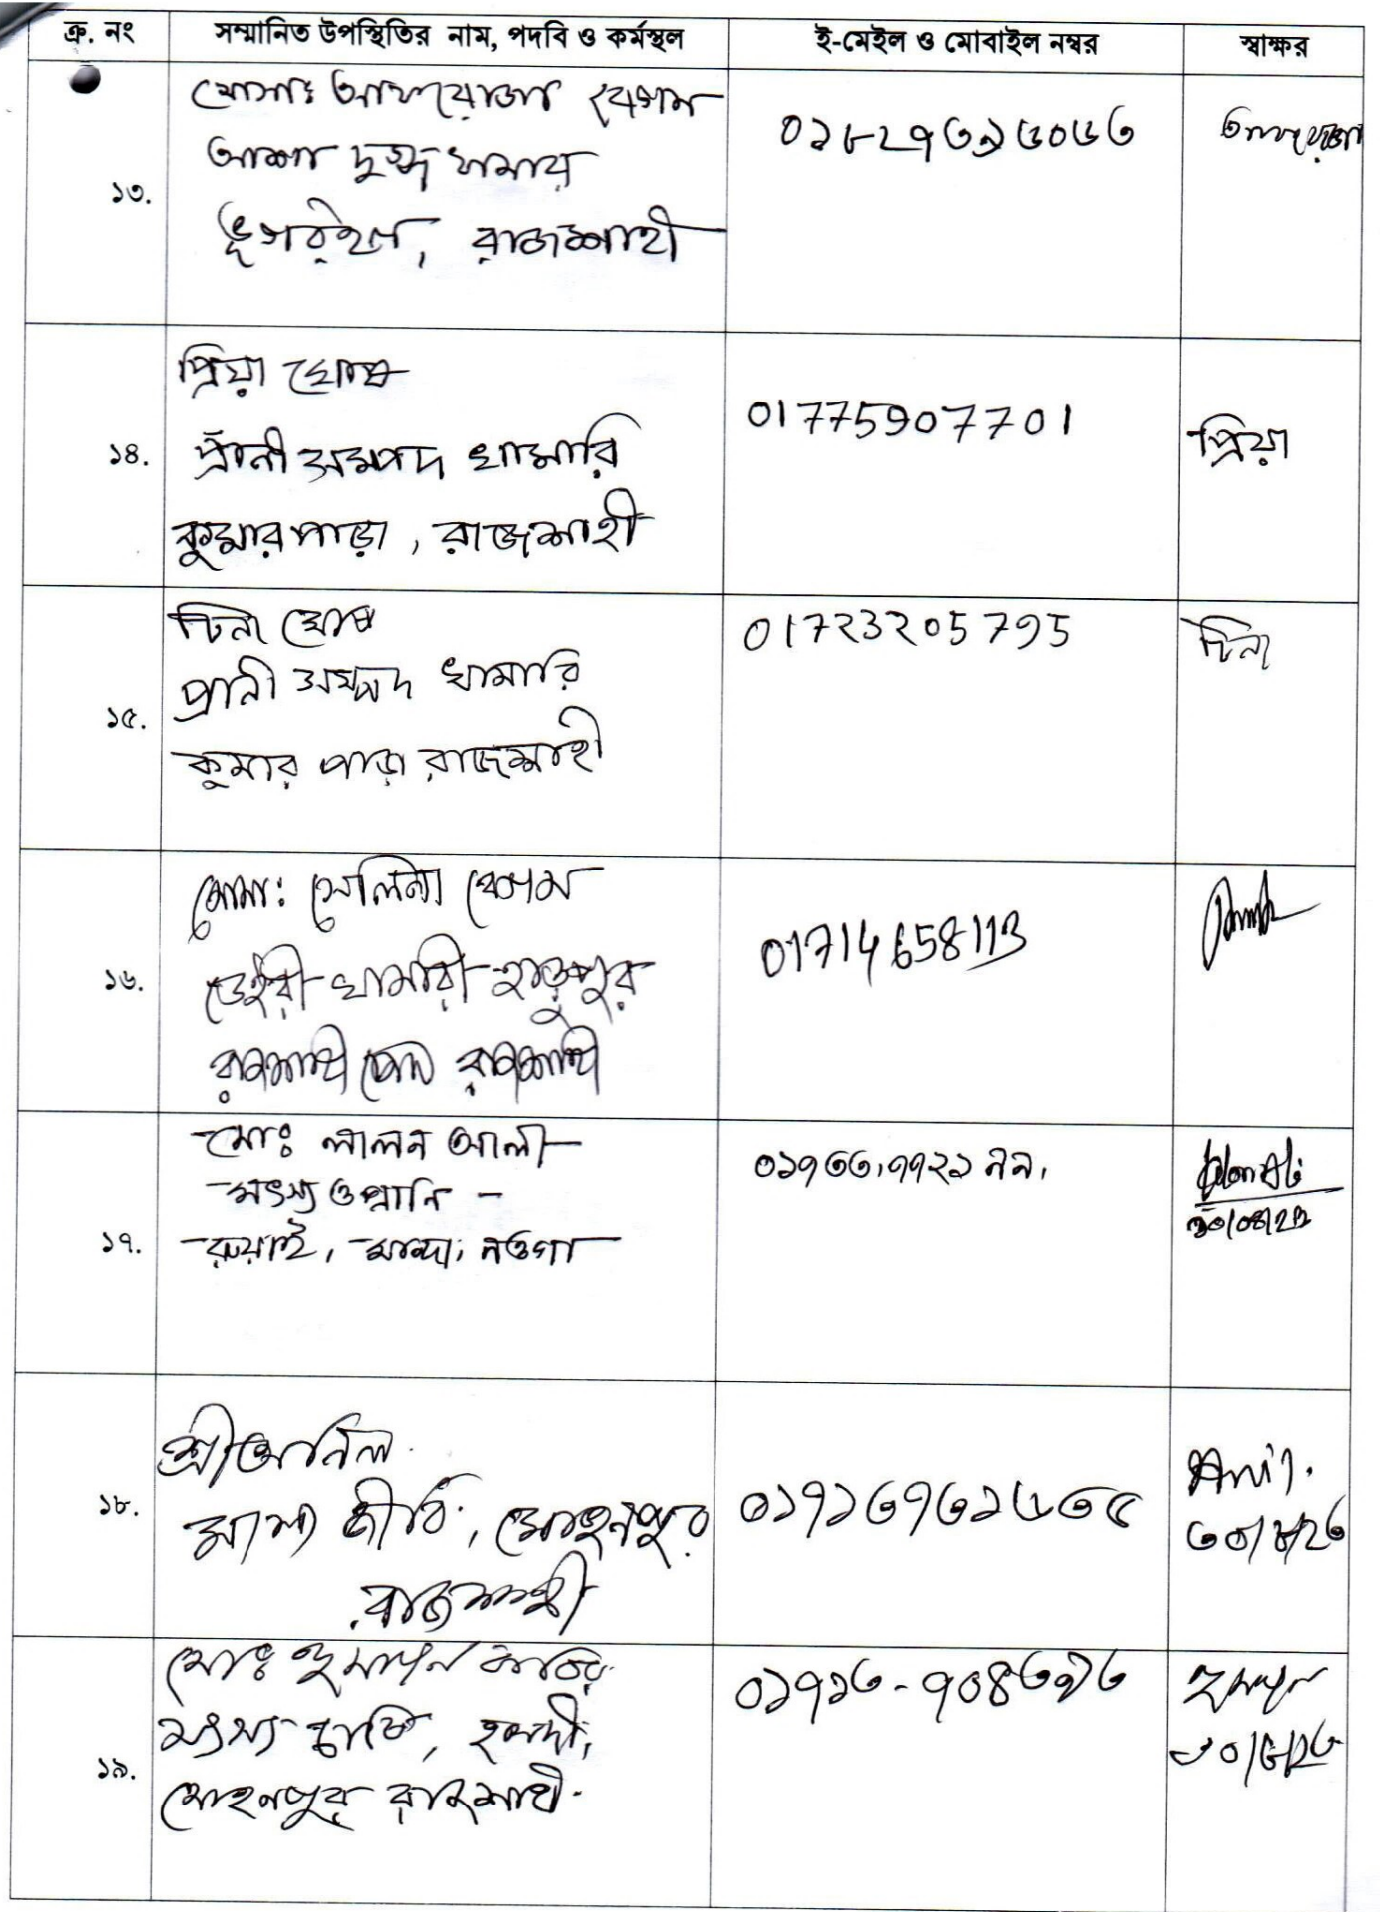 ক্র. নং সম্মানিত উপস্থিতির নাম, পদবি ও কর্মস্থল ই-মেইল ও মোবাইল নম্বর স্বাক্ষর
১৩. মোসাঃ আফরোজা বেগম
আশা দুগ্ধ খামার
রাজশাহী
আফরোজা
১৪. প্রিয়া ঘোষ
প্রাঁনী সম্পদ খামারি
কুমারপাড়া, রাজশাহী
01775907701
প্রিয়া
১৫. টিনা ঘোষ
প্রানী সম্পদ খামারি
কুমার পাড়া রাজশাহী
01723205795
টিনা
১৬. মোসা: সেলিনা বেগম
ডেইরী খামারী হাড়ুপুর
রাজশাহী কোর্ট রাজশাহী
01714658113
১৭. মোঃ লালন আলী
মৎস্য ও প্রানি -
রুয়াই, মান্দা, নওগা
30/08/23
১৮. শ্রী অনিল
মৎস্য জীবি, মোহনপুর
রাজশাহী
০১৭১৩৭৩১৬৩৫
Anil.
৩০/৮/২৩
১৯. মোঃ হুমায়ন কবির
মৎস্য চাষি,
মোহনপুর রাজশাহী.
০১৭১৩-৭০৪৩৯৩